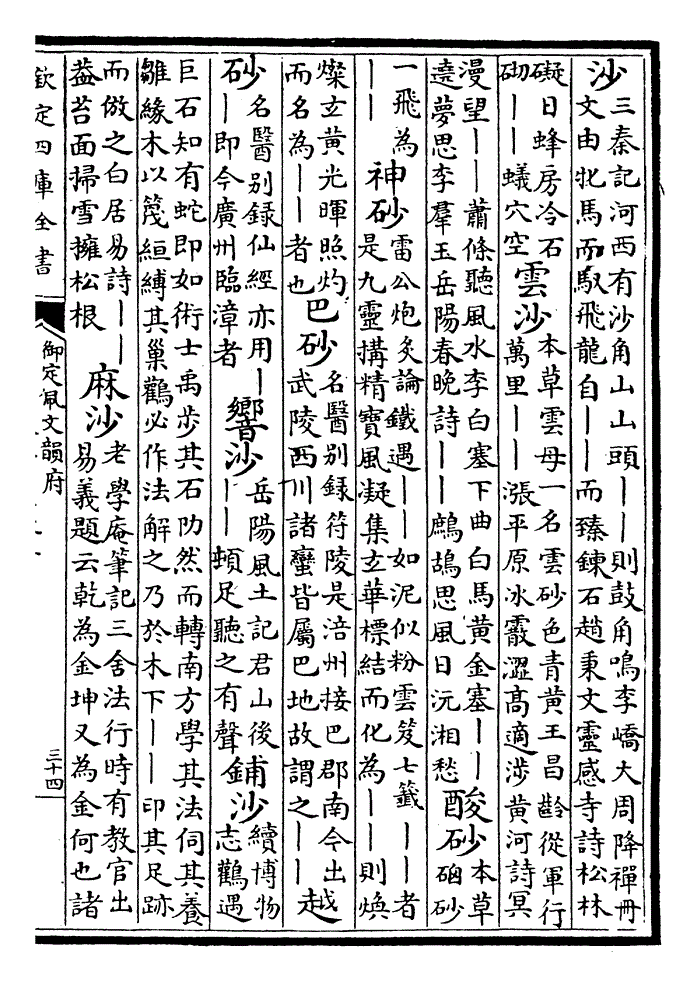 沙
三秦記河西有沙角山山頭丨丨則鼓角鳴李嶠大周降禪冊
文由牝馬而馭飛龍自丨丨而臻鍊石趙秉文靈感寺詩松林
礙日蜂房冷石
砌丨丨蟻穴空
雲沙
本草雲母一名雲砂色青黃王昌齡從軍行
萬里丨丨漲平原冰霰澀高適涉黃河詩冥
漫望丨丨蕭條聽風水李白塞下曲白馬黃金塞丨丨
遶夢思李羣玉岳陽春晚詩丨丨鷓鴣思風日沅湘愁
酸砂
本草
硇砂
一飛為
丨丨
神砂
雷公炮炙論鐵遇丨丨如泥似粉雲笈七籤丨丨者
是九靈搆精寶風凝集玄華標結而化為丨丨則煥
燦玄黃光暉照灼
而名為丨丨者也
巴砂
名醫別録符陵是涪州接巴郡南今出
武陵西川諸蠻皆屬巴地故謂之丨丨
越
砂
名醫別録仙經亦用丨
丨即今廣州臨漳者
響沙
岳陽風土記君山後
丨丨頓足聽之有聲
鋪沙
續博物
志鸛遇
巨石知有蛇即如術士禹步其石阞然而轉南方學其法伺其養
雛緣木以篾絙縛其巢鸛必作法解之乃於木下丨丨印其足跡
而倣之白居易詩丨丨
葢苔面掃雪擁松根
麻沙
老學庵筆記三舍法行時有教官出
易義題云乾為金坤又為金何也諸
欽定四庫全書
御定佩文韻府
三十四